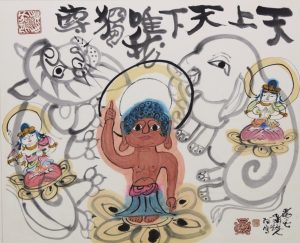 天上天下唯我獨尊